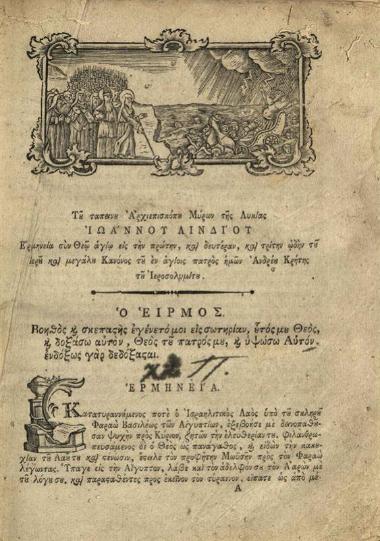 Τȣ ταπεινȣ̂ Ἀρχιεπισκόπȣ Μύρων τῆς Λυκίας
ἸΩΆΝΝΟΥ ΛΙΝΔΊΟΥ
Ἑρμηνεία σὺν Θεῷ ἁγίῳ εἰς τὴν πρώτην, καὶ δευτέραν, καὶ τρίτην ᾠδὴν τȣ̂
ἱερȣ̂ καὶ μεγάλȣ Κανόνος τȣ̂ ἐν ἁγίοις πατρὸς ἡμῶν Ἀνδρέȣ Κρήτης
τȣ̂ Ἱεροσολυμίτȣ.
Ὁ ΕἹΡΜΟΣ.
Βοηθὸς ϗ σκεπαςὴς ἐγένετό μοι εἰς σωτηρίαν, ȣ̔͂τός μȣ Θεός,
ϗ δοξάσω αὐτὸν, Θεὸς τȣ̂ πατρός μȣ, ϗ ὑψώσω Αὐτόν.
ἐνδόξως γὰρ δεδόξαςαι.
ἙΡΜΗΝΕΊΑ.
ΕΚαταтυραννȣ́μενος ποτὲ ὁ Ἰσραηλιτικὸς Λαὸς ὑπὸ τȣ̂ σκληρȣ̂
Φαραὼ Βασιλέως τῶν Αἰγυπτίων, ἐξεβόησε μὲ
ψυχὴν πρὸς Κύριον, ζητῶν τὴν ἐλευθερίαν τȣ. φιλανθρω-
πευσάμενος ȣ̓͂ν ὁ Θεὸς ὡς πανάγαθος, ϗ εἰδὼν τὴν κακȣ-
χίαν τȣ̂ Λαȣ̂ τȣ καὶ ςένωσιν, ἔςειλε τὸν προφήτην Μωυσῆν πρὸς τὸν Φαραὼ
λέγωντας. Ὕπαγε εἰς τὴν Αἴγυπτον, λάβε καὶ τὸν ἀδελφόν σȣ τὸν Ἀαρὼν μὲ
τȣ̂ λόγȣ σȣ, καὶ παραςαθέντες πρὸς ἐκεῖνον τὸν τύραννον, εἴπατε ὡς ἀπὸ μέ-
Α